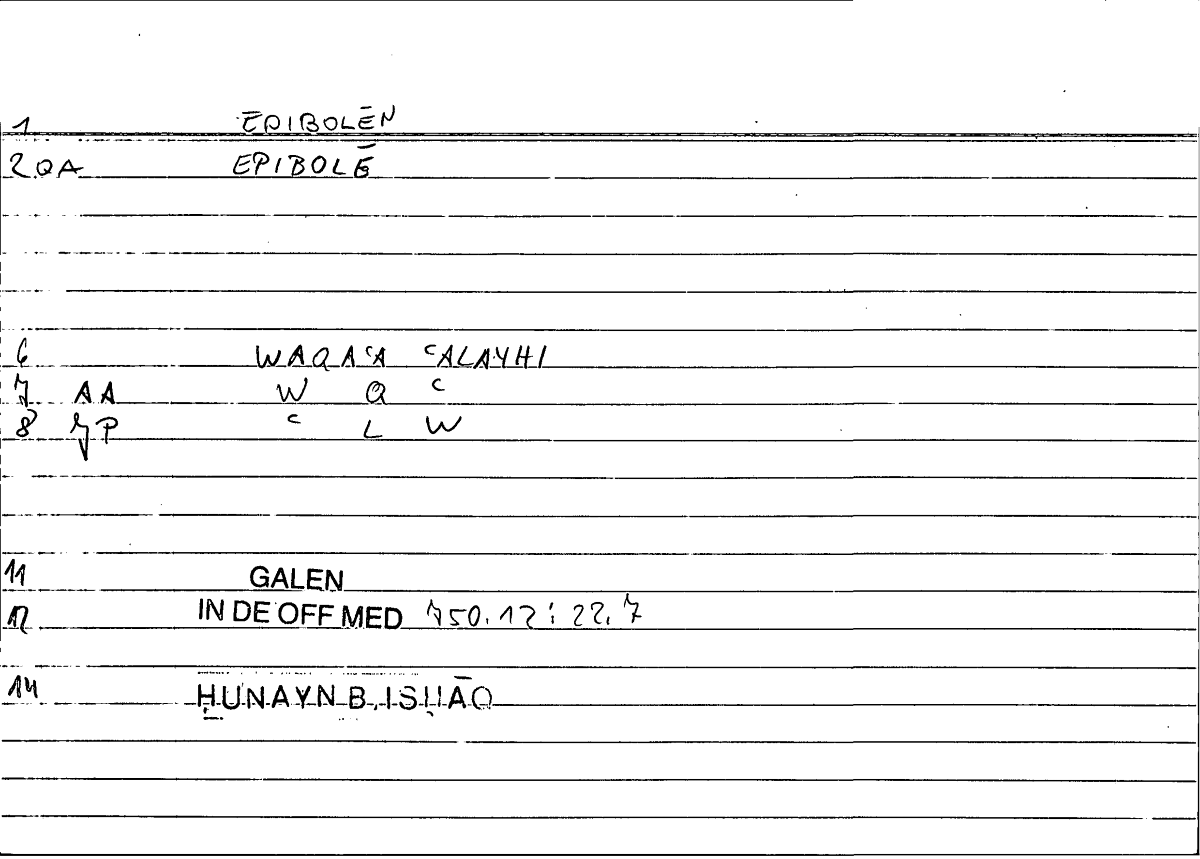 1 EPIBOLĒN
2 QA EPIBOLĒ
6 WAQAʿA ʿALAYHI
7 AA W Q ʿ
8 JP ʿ L W
11 GALEN
12 IN DE OFF MED 750.12 : 22.7
14 ḤUNAYN B. ISḤĀQ